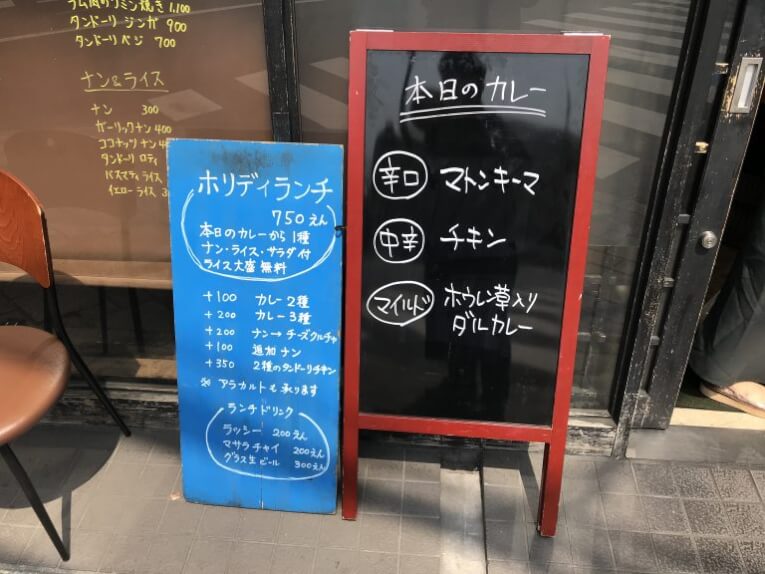 ラム肉のクミン焼き 1,100
タンドーリ ジンガ 900
タンドーリ ベジ 700
ナン&ライス
ナン 300
ガーリックナン 400
ココナッツ ナン
タンドーリ ロティ
バスマティ ライス
イエローライス
ホリディランチ
750えん
本日のカレーから1種
ナン・ライス・サラダ付
ライス大盛無料
+100 カレー2種
+200 カレー3種
+200 ナン→チーズクルチャ
+100 追加ナン
+350 2種のタンドーリチキン
※ アラカルトも承ります
ランチドリンク
ラッシー 200えん
マサラチャイ 200えん
グラス生ビール 300えん
本日のカレー
辛口 マトンキーマ
中辛 チキン
マイルド ホウレン草入り
ダルカレー